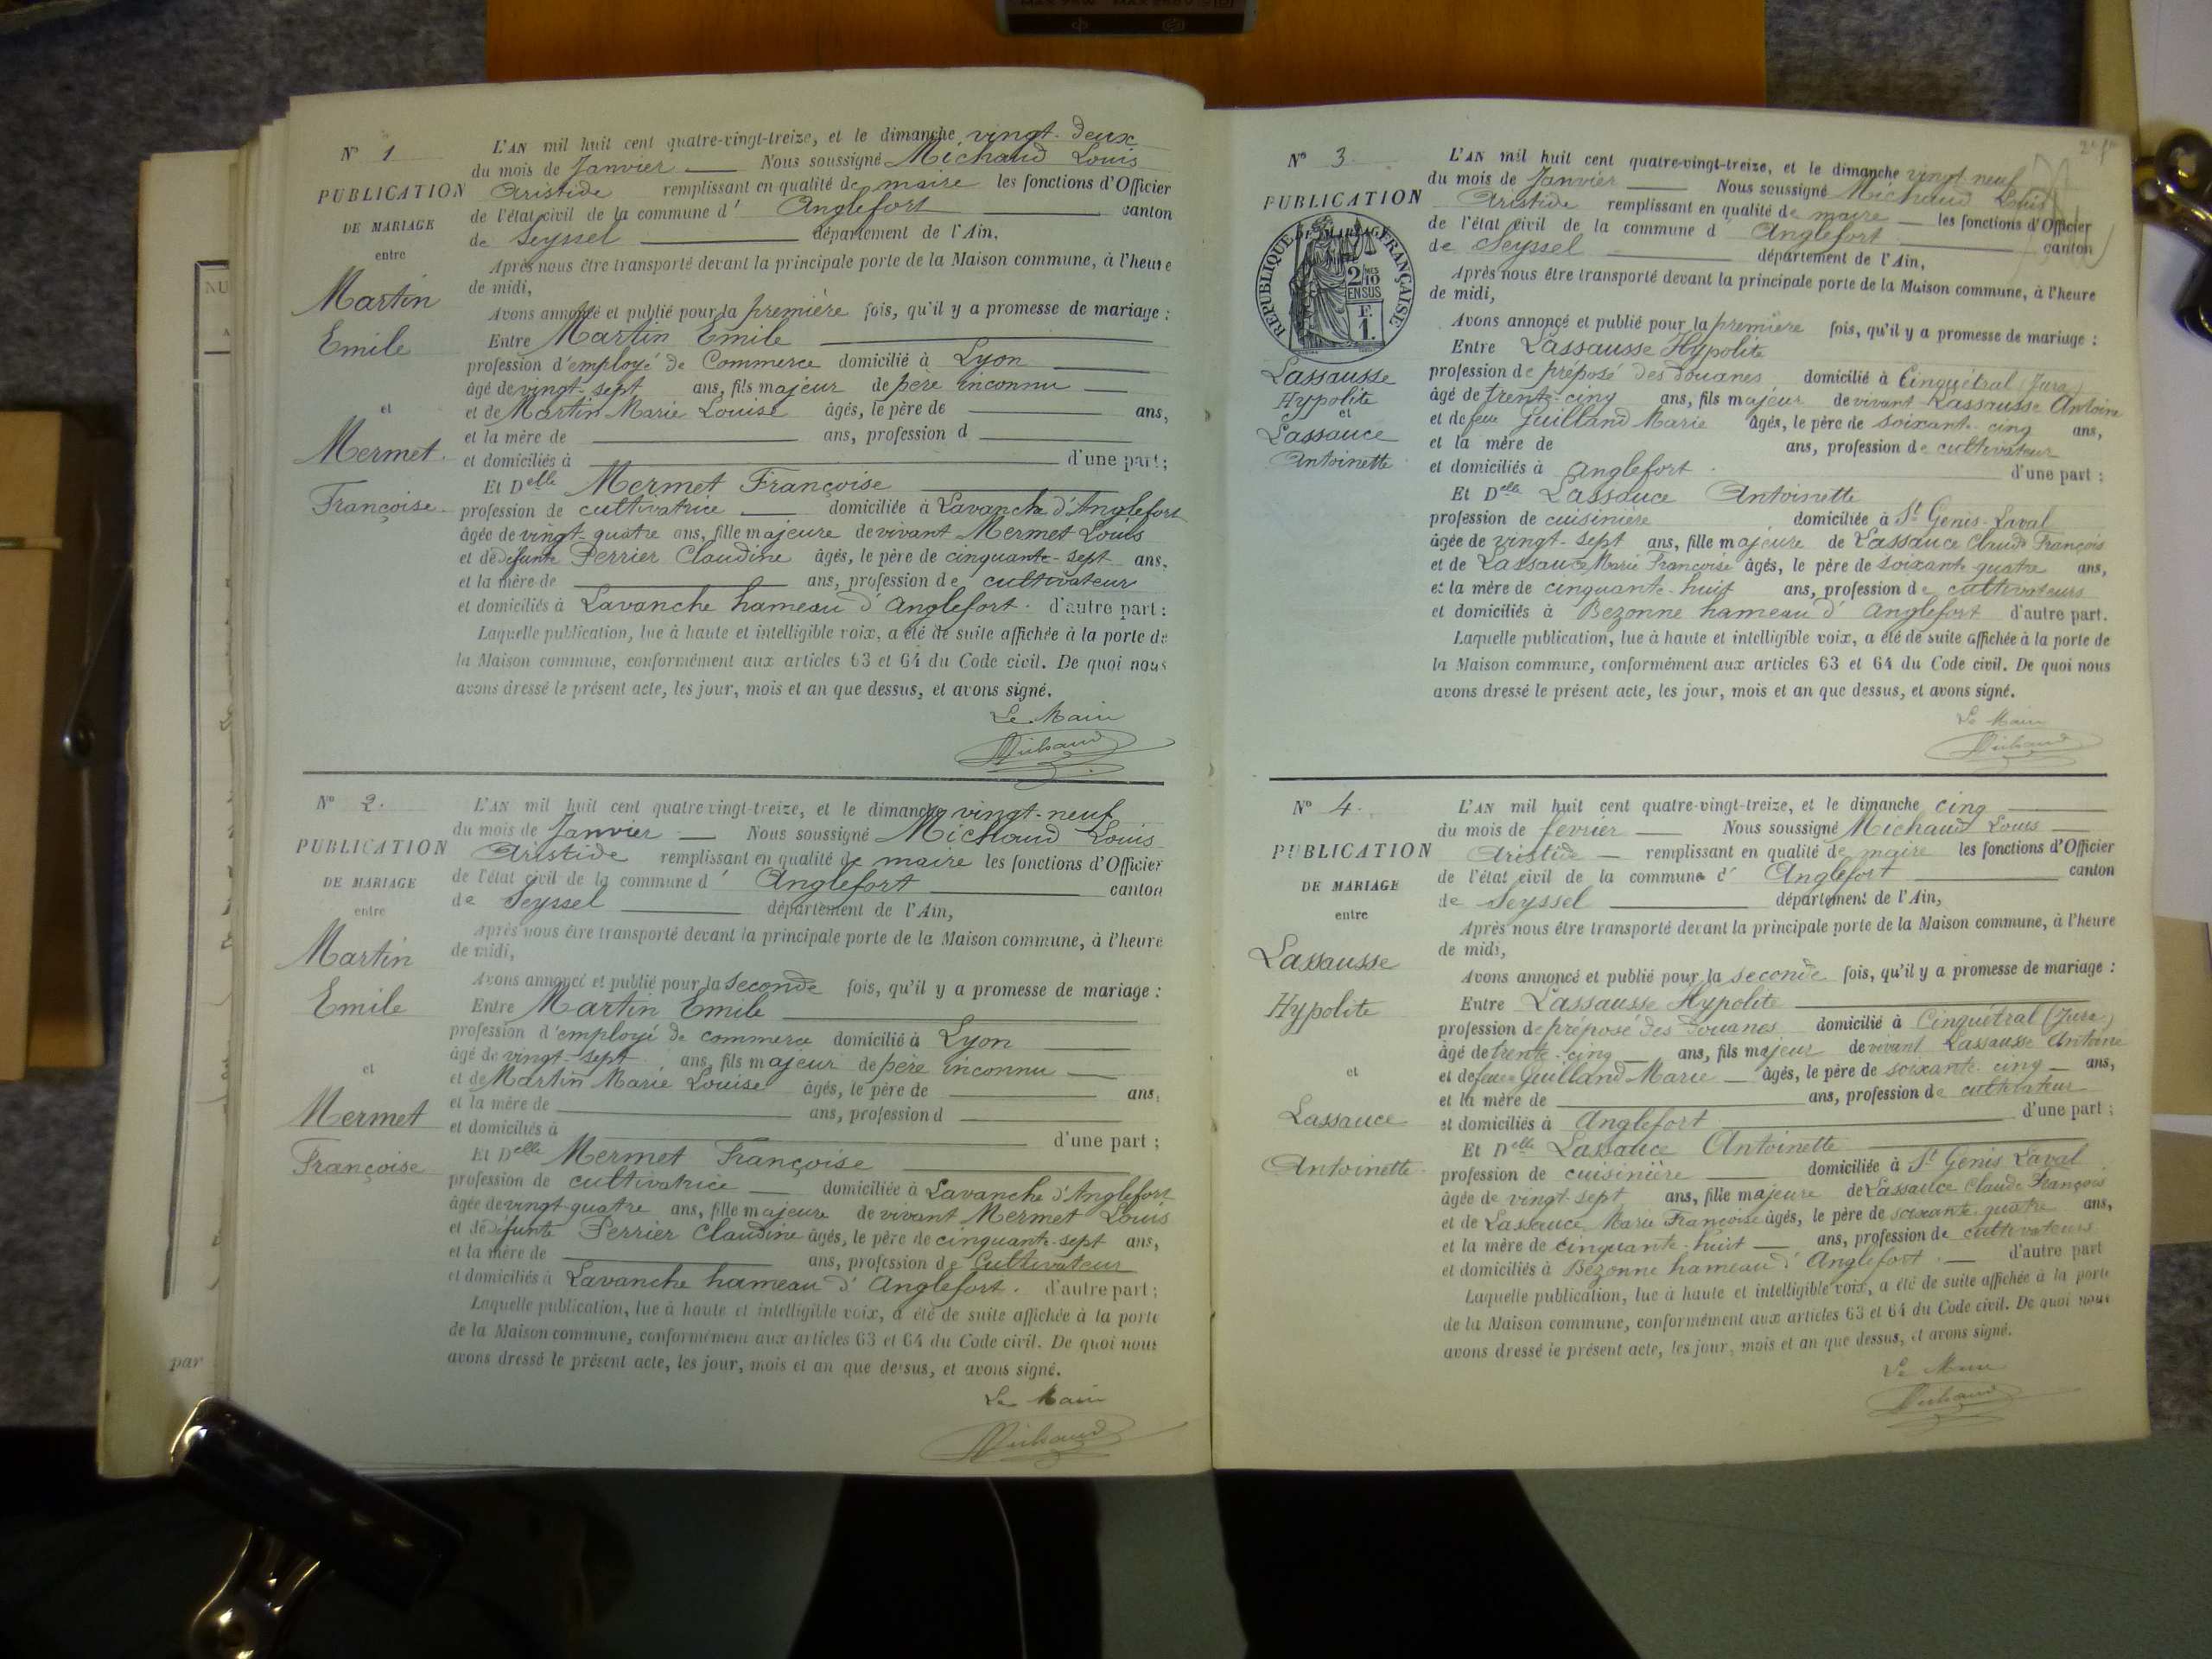 N° 1
PUBLICATION
DE MARIAGE
entre
Martin
Emile
et
Mermet
Françoise
L'AN mil huit cent quatre-vingt-treize, et le dimanche vingt-deux
du mois de Janvier Nous soussigné Michaud Louis
Aristide remplissant en qualité de maire les fonctions d'Officier
de l'état civil de la commune d' Anglefort canton
de Seyssel département de l'Ain,
Après nous être transporté devant la principale porte de la Maison commune, à l'heure
de midi,
Avons annoncé et publié pour la première fois, qu'il y a promesse de mariage :
Entre Martin Emile
profession d'employé de Commerce domicilié à Lyon
âgé de vingt-sept ans, fils majeur de père inconnu
et de Martin Marie Louise âgés, le père de ans,
et la mère de ans, profession d
et domiciliés à d'une part;
Et Delle Mermet Françoise
profession de cultivatrice domiciliée à Lavanche d'Anglefort
âgée de vingt-quatre ans, fille majeure de vivant Mermet Louis
et de défunte Perrier Claudine âgés, le père de cinquante-sept ans,
et la mère de ans, profession de cultivateur
et domiciliés à Lavanche hameau d'Anglefort. d'autre part:
Laquelle publication, lue à haute et intelligible voix, a été de suite affichée à la porte de
la Maison commune, conformément aux articles 63 et 64 du Code civil. De quoi nous
avons dressé le présent acte, les jour, mois et an que dessus, et avons signé.
Le Maire
Michaud
N° 2.
PUBLICATION
DE MARIAGE
entre
Martin
Emile
et
Mermet
Françoise
L'AN mil huit cent quatre vingt-treize, et le dimanche vingt-neuf
du mois de Janvier Nous soussigné Michaud Louis
Aristide remplissant en qualité de maire les fonctions d'Officier
de l'état civil de la commune d' Anglefort canton
de Seyssel département de l'Ain,
Après nous être transporté devant la principale porte de la Maison commune, à l'heure
de midi,
Avons annoncé et publié pour la seconde fois, qu'il y a promesse de mariage :
Entre Martin Emile
profession d'employé de commerce domicilié à Lyon
âgé de vingt-sept ans, fils majeur de père inconnu
et de Martin Marie Louise âgés, le père de ans,
et la mère de ans, profession d
et domiciliés à d'une part ;
Et Delle Mermet Françoise
profession de cultivatrice domiciliée à Lavanche d'Anglefort
âgée de vingt-quatre ans, fille majeure de vivant Mermet Louis
et de défunte Perrier Claudine âgés, le père de cinquante-sept ans,
et la mère de ans, profession de Cultivateur
et domiciliés à Lavanche hameau d'Anglefort. d'autre part ;
Laquelle publication, lue à haute et intelligible voix, a été de suite affichée à la porte
de la Maison commune, conformément aux articles 63 et 64 du Code civil. De quoi nous
avons dressé le présent acte, les jour, mois et an que dessus, et avons signé.
Le Maire
Michaud
par
N° 3
PUBLICATION
DE MARIAGE
RÉPUBLIQUE FRANÇAISE
2/10
EN SUS
F.
1.
Lassausse
Hypolite
et
Lassauce
Antoinette
L'AN mil huit cent quatre-vingt-treize, et le dimanche vingt neuf
du mois de Janvier Nous soussigné Michaud Louis
Aristide remplissant en qualité de maire les fonctions d'Officier
de l'état civil de la commune d' Anglefort canton
de Seyssel département de l'Ain,
Après nous être transporté devant la principale porte de la Maison commune, à l'heure
de midi,
Avons annoncé et publié pour la première fois, qu'il y a promesse de mariage :
Entre Lassausse Hypolite
profession de préposé des douanes domicilié à Cinquétral (Jura)
âgé de trente-cinq ans, fils majeur de vivant Lassausse Antoine
et de feue Guilland Marie âgés, le père de soixante-cinq ans,
et la mère de ans, profession de cultivateur
et domiciliés à Anglefort. d'une part ;
Et Delle Lassauce Antoinette
profession de cuisinière domiciliée à St Genis-Laval
âgée de vingt-sept ans, fille majeure de Lassauce Claude François
et de Lassauce Marie Françoise âgés, le père de soixante-quatre ans,
et la mère de cinquante-huit ans, profession de cultivateurs
et domiciliés à Bezonne hameau d'Anglefort d'autre part.
Laquelle publication, lue à haute et intelligible voix, a été de suite affichée à la porte de
la Maison commune, conformément aux articles 63 et 64 du Code civil. De quoi nous
avons dressé le présent acte, les jour, mois et an que dessus, et avons signé.
Le Maire
Michaud
N° 4.
PUBLICATION
DE MARIAGE
entre
Lassausse
Hypolite
et
Lassauce
Antoinette.
L'AN mil huit cent quatre-vingt-treize, et le dimanche cinq
du mois de fevrier Nous soussigné Michaud Louis
Aristide remplissant en qualité de maire les fonctions d'Officier
de l'état civil de la commune d' Anglefort canton
de Seyssel département de l'Ain,
Après nous être transporté devant la principale porte de la Maison commune, à l'heure
de midi,
Avons annoncé et publié pour la seconde fois, qu'il y a promesse de mariage :
Entre Lassausse Hypolite
profession de préposé des douanes domicilié à Cinquétral (Jura)
âgé de trente-cinq ans, fils majeur de vivant Lassausse Antoine
et de feue Guilland Marie âgés, le père de soixante-cinq ans,
et la mère de ans, profession de cultivateur
et domiciliés à Anglefort d'une part ;
Et Delle Lassauce Antoinette
profession de cuisinière domiciliée à St Genis Laval
âgée de vingt-sept ans, fille majeure de Lassauce Claude François
et de Lassauce Marie Françoise âgés, le père de soixante-quatre ans,
et la mère de cinquante-huit ans, profession de cultivateurs
et domiciliés à Bezonne hameau d'Anglefort. d'autre part
Laquelle publication, lue à haute et intelligible voix, a été de suite affichée à la porte
de la Maison commune, conformément aux articles 63 et 64 du Code civil. De quoi nous
avons dressé le présent acte, les jour, mois et an que dessus, et avons signé.
Le Maire
Michaud